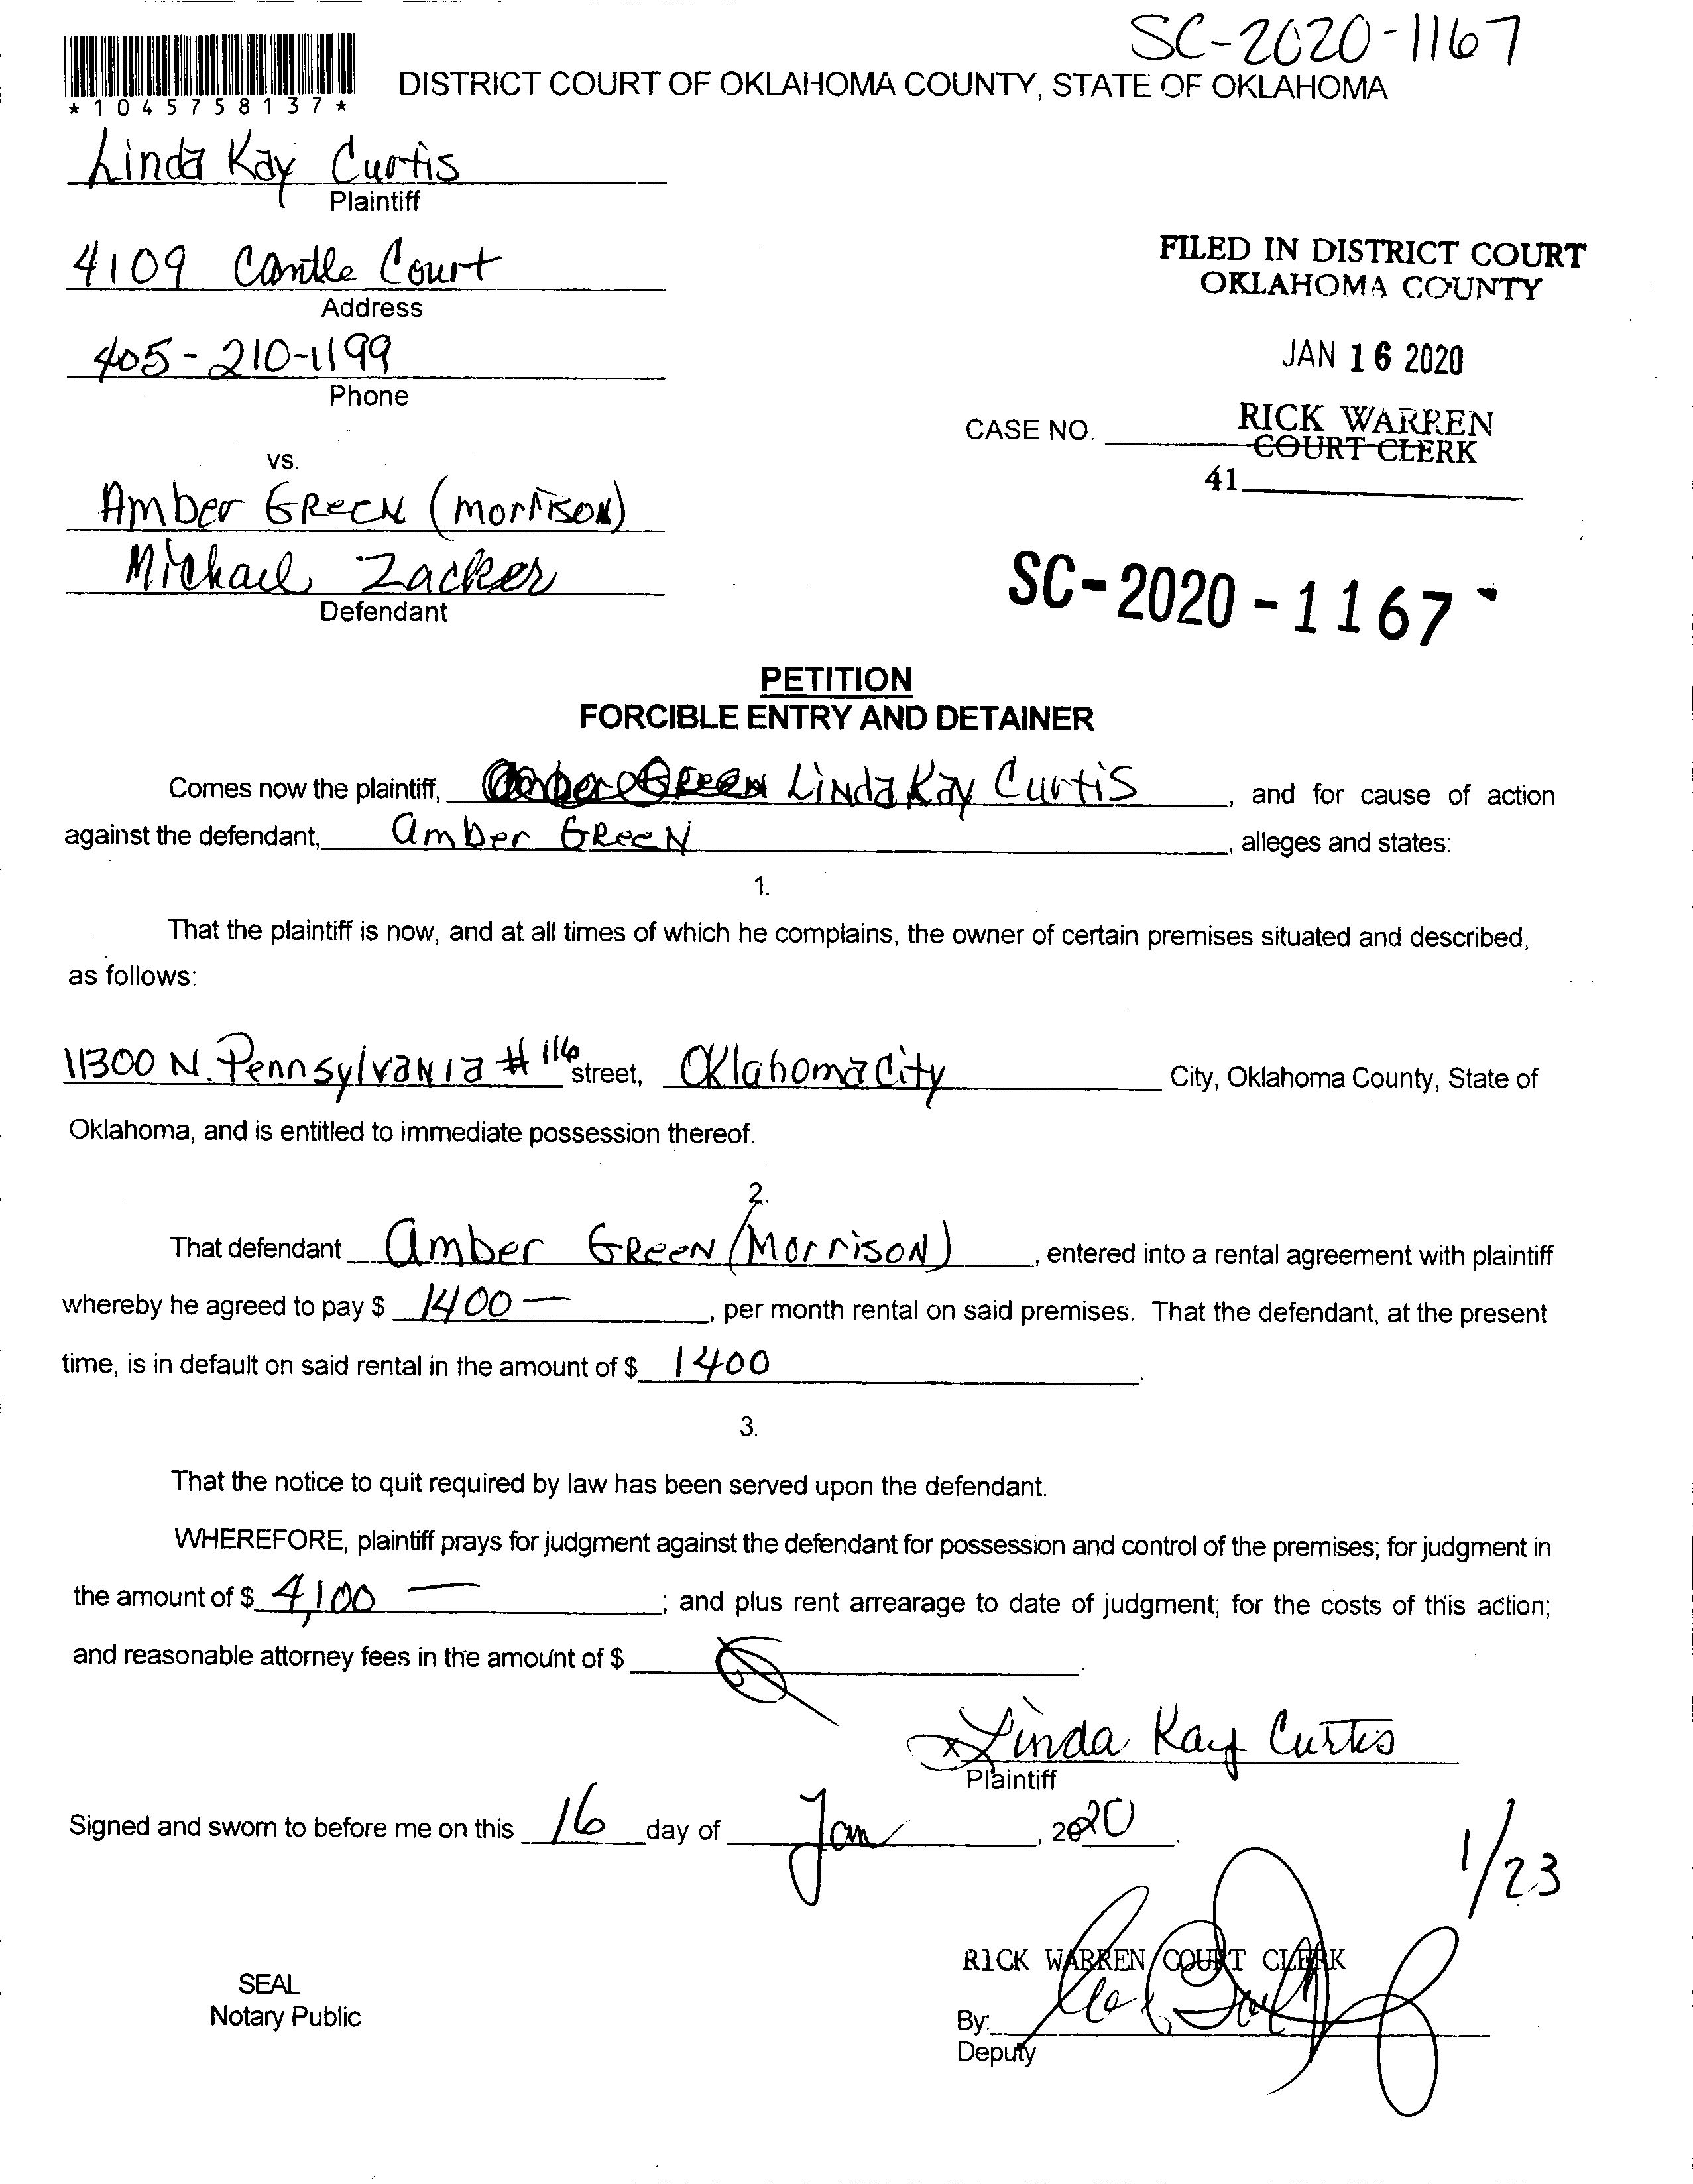 SC-2020-1167
*1045758137*
DISTRICT COURT OF OKLAHOMA COUNTY, STATE OF OKLAHOMA
Linda Kay Curtis
Plaintiff
4109 Cantle Court
Address
405-210-1199
Phone
FILED IN DISTRICT COURT
OKLAHOMA COUNTY
JAN 16 2020
RICK WARREN
COURT CLERK
CASE NO.
41
vs.
Amber GReeN (morrisoN)
Michael Zacker
Defendant
SC-2020-1167
PETITION
FORCIBLE ENTRY AND DETAINER
Comes now the plaintiff, Amber GReeN LiNda Kay CurtiS, and for cause of action
against the defendant, amber GReeN, alleges and states:
1.
That the plaintiff is now, and at all times of which he complains, the owner of certain premises situated and described,
as follows:
11300 N. PennsylvaNia #116 street, OKlahoma City City, Oklahoma County, State of
Oklahoma, and is entitled to immediate possession thereof.
2.
That defendant amber GReeN (MorrisoN), entered into a rental agreement with plaintiff
whereby he agreed to pay $ 1400—, per month rental on said premises. That the defendant, at the present
time, is in default on said rental in the amount of $ 1400.
3.
That the notice to quit required by law has been served upon the defendant.
WHEREFORE, plaintiff prays for judgment against the defendant for possession and control of the premises; for judgment in
the amount of $ 4,100 —; and plus rent arrearage to date of judgment; for the costs of this action;
and reasonable attorney fees in the amount of $
x Linda Kay Curtis
Plaintiff
Signed and sworn to before me on this 16 day of Jan, 2020.
1/23
RICK WARREN COURT CLERK
SEAL
Notary Public
By:
Deputy